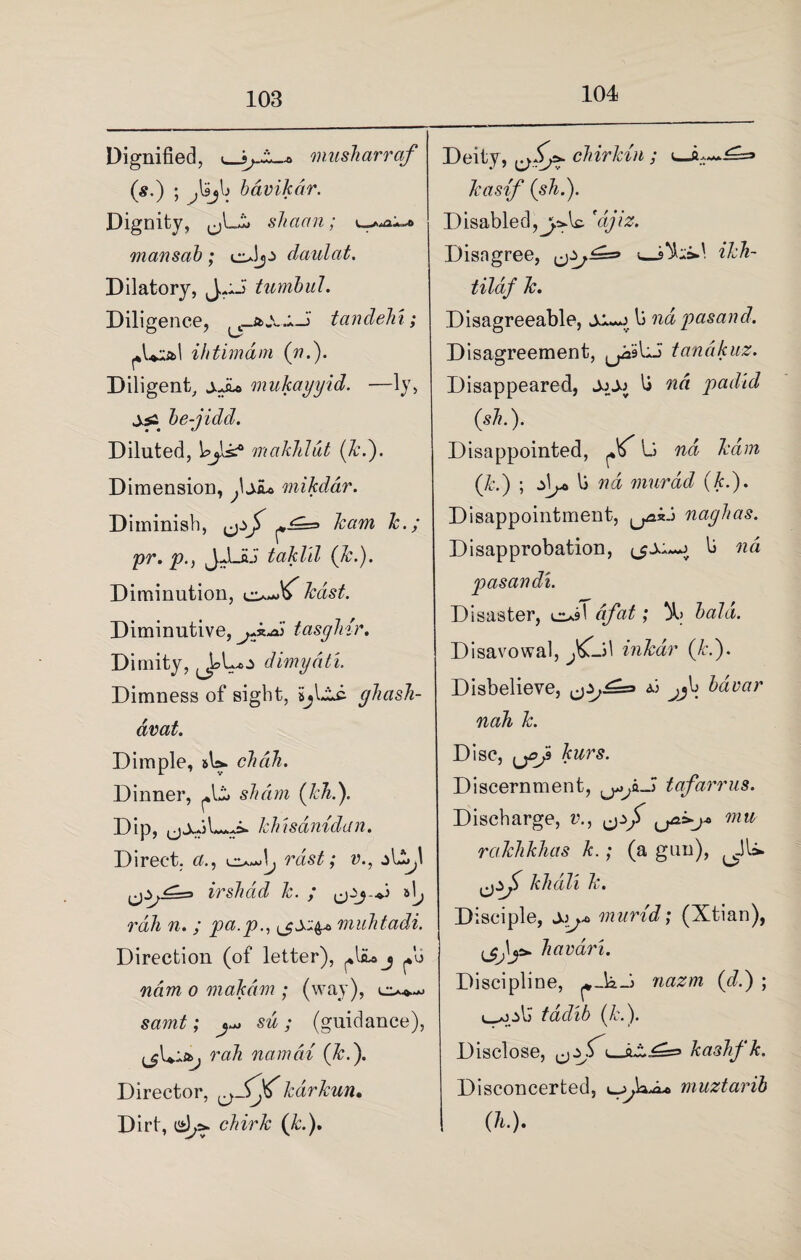 103
Dignified, مشرف musharraf
(s.) ; باوقار bávikár.
Dignity, شان shaan ; منصب
mansab ; دولت daulat.
Dilatory, تنبل tumbul.
Diligence, تندهی tandehi ;
اهتمام ihtimám (n.).
Diligent, مقید mukayyid. —ly,
بجد be-jidd.
Diluted, مخلوط makhlút (k.).
Dimension, مقدار mikdár.
Diminish, کم کردن kam k. ;
pr. p., تقلیل taklíl (k.).
Diminution, کاست kást.
Diminutive, تصغیر tasghír.
Dimity, دمیاطی dimyáti.
Dimness of sight, غشاوة ghash-
ávat.
Dimple, چاه cháh.
Dinner, شام shám (kh.).
Dip, خیسانیدن khísánídan.
Direct, a., راست rást ; v., ارشاد
کردن irshád k. ; راه نمودن
ráh n. ; pa.p., مهتدی muhtadi.
Direction (of letter), نام و مقام
nám o makám ; (way), سمت
samt ; سو sú ; (guidance),
رهنمائی rah namáí (k.).
Director, کارکن kárkun.
Dirt, چرک chirk (k.).
104
Deity, چرکین chirkín ; کثیف
kasíf (sh.).
Disabled, عاجز 'ájiz.
Disagree, اختلاف کردن ikh-
tiláf k.
Disagreeable, نا پسند ná pasand.
Disagreement, تناقض tanákuz.
Disappeared, نا پدید ná padíd
(sh.).
Disappointed, نا کام ná kám
(k.) ; نا مراد ná murád (k.).
Disappointment, نغص naghas.
Disapprobation, نا پسندی ná
pasandi.
Disaster, آفت áfat ; بلا balá.
Disavowal, انکار inkár (k.).
Disbelieve, باور نه کردن bávar
nah k.
Disc, قرص kurs.
Discernment, تفرس tafarrus.
Discharge, v., مرخص کردن mu
rakhkhas k. ; (a gun), خالی
کردن kháli k.
Disciple, مرید muríd ; (Xtian),
حواری havári.
Discipline, نظم nazm (d.) ;
تادیب tádíb (k.).
Disclose, کشف کردن kashf k.
Disconcerted, مضطرب muztarib
(h.).